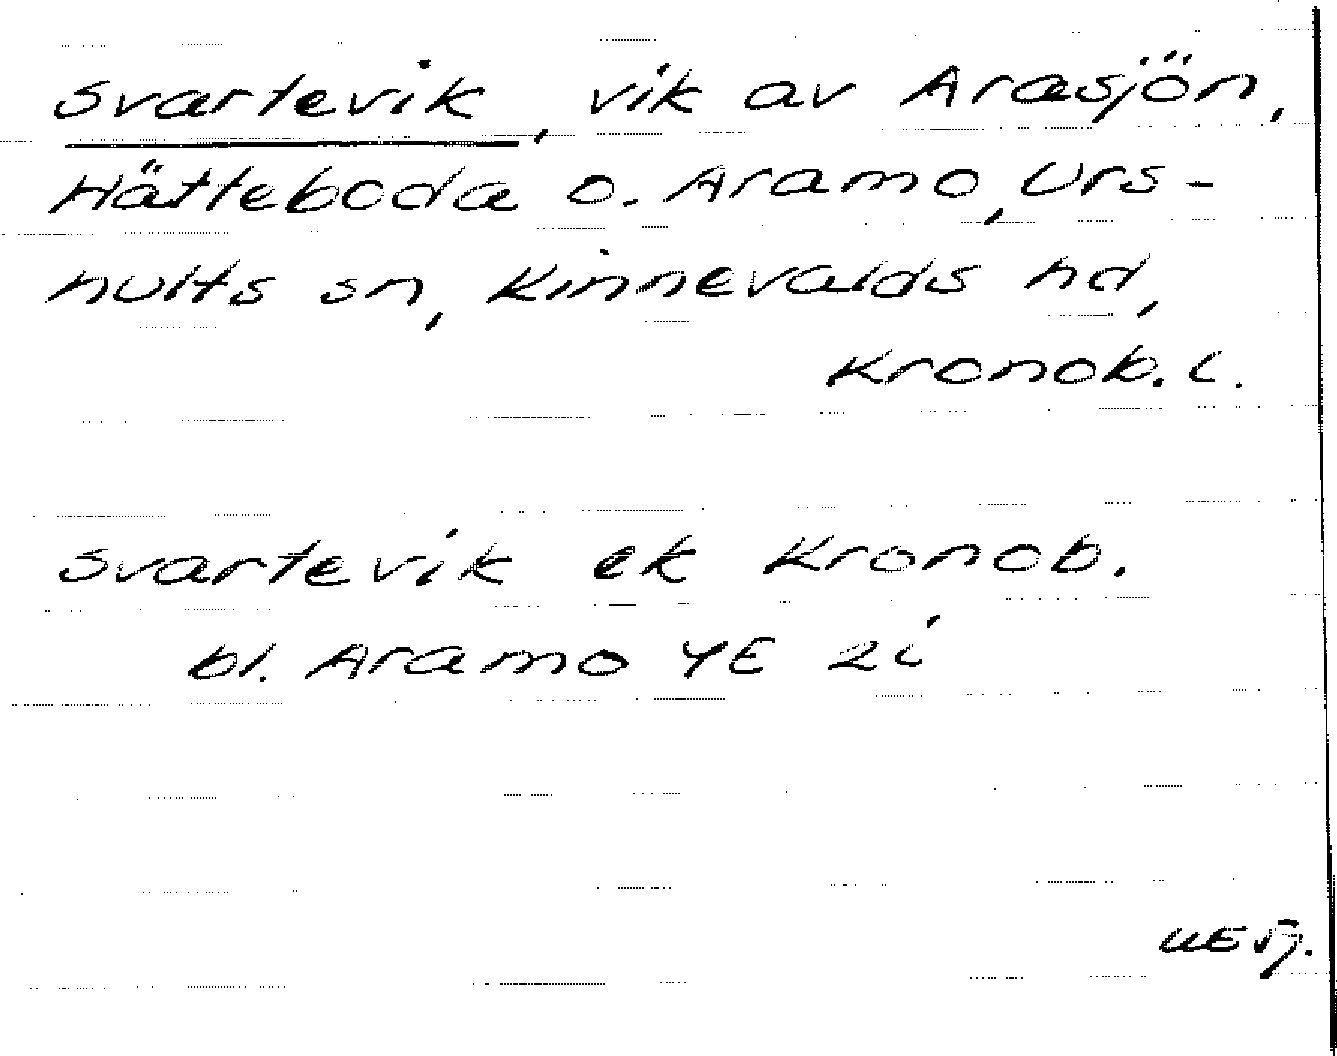 Svartevik, vik av Arasjön,
Hätteboda o. Aramo, Urs-
hults sn, Kinnevalds hd,
Kronob. l.
Svartevik ek Kronob.
bl. Aramo YE 2i